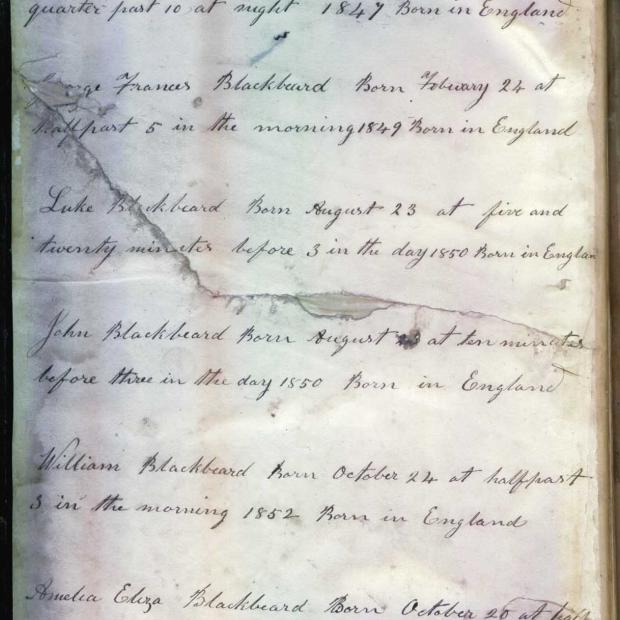 quarter past 10 at night 1847 Born in England
George Frances Blackbeard Born Febuary 24 at
halfpart 5 in the morning 1849 Born in England
Luke Blackbeard Born August 23 at five and
twenty minetes before 3 in the day 1850 Born in Englan
John Blackbeard Born August 23 at ten minutes
before three in the day 1850 Born in England
William Blackbeard Born October 24 at halfpart
3 in the morning 1852 Born in England
Amelia Eliza Blackbeard Born October 20 at half